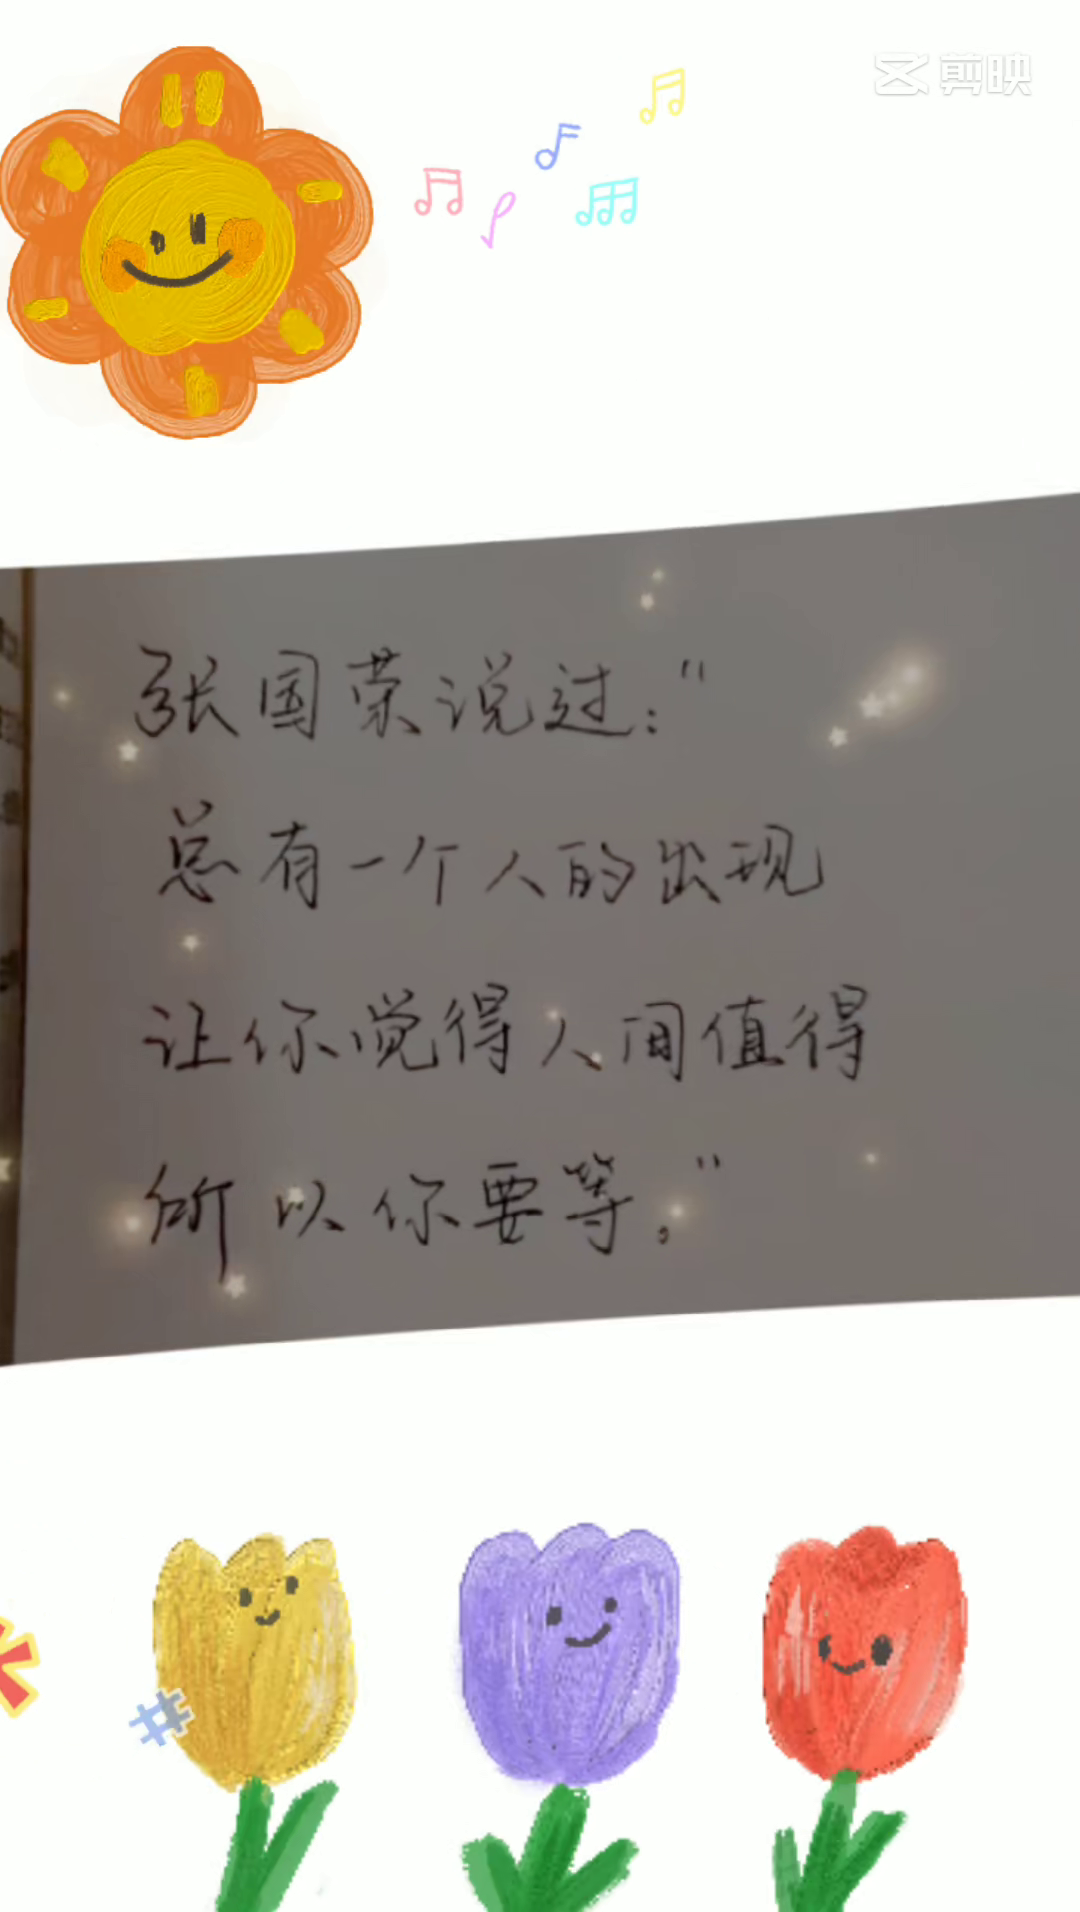 剪映
张国荣说过："
总有一个人的出现
让你觉得人间值得
所以你要等。"
#